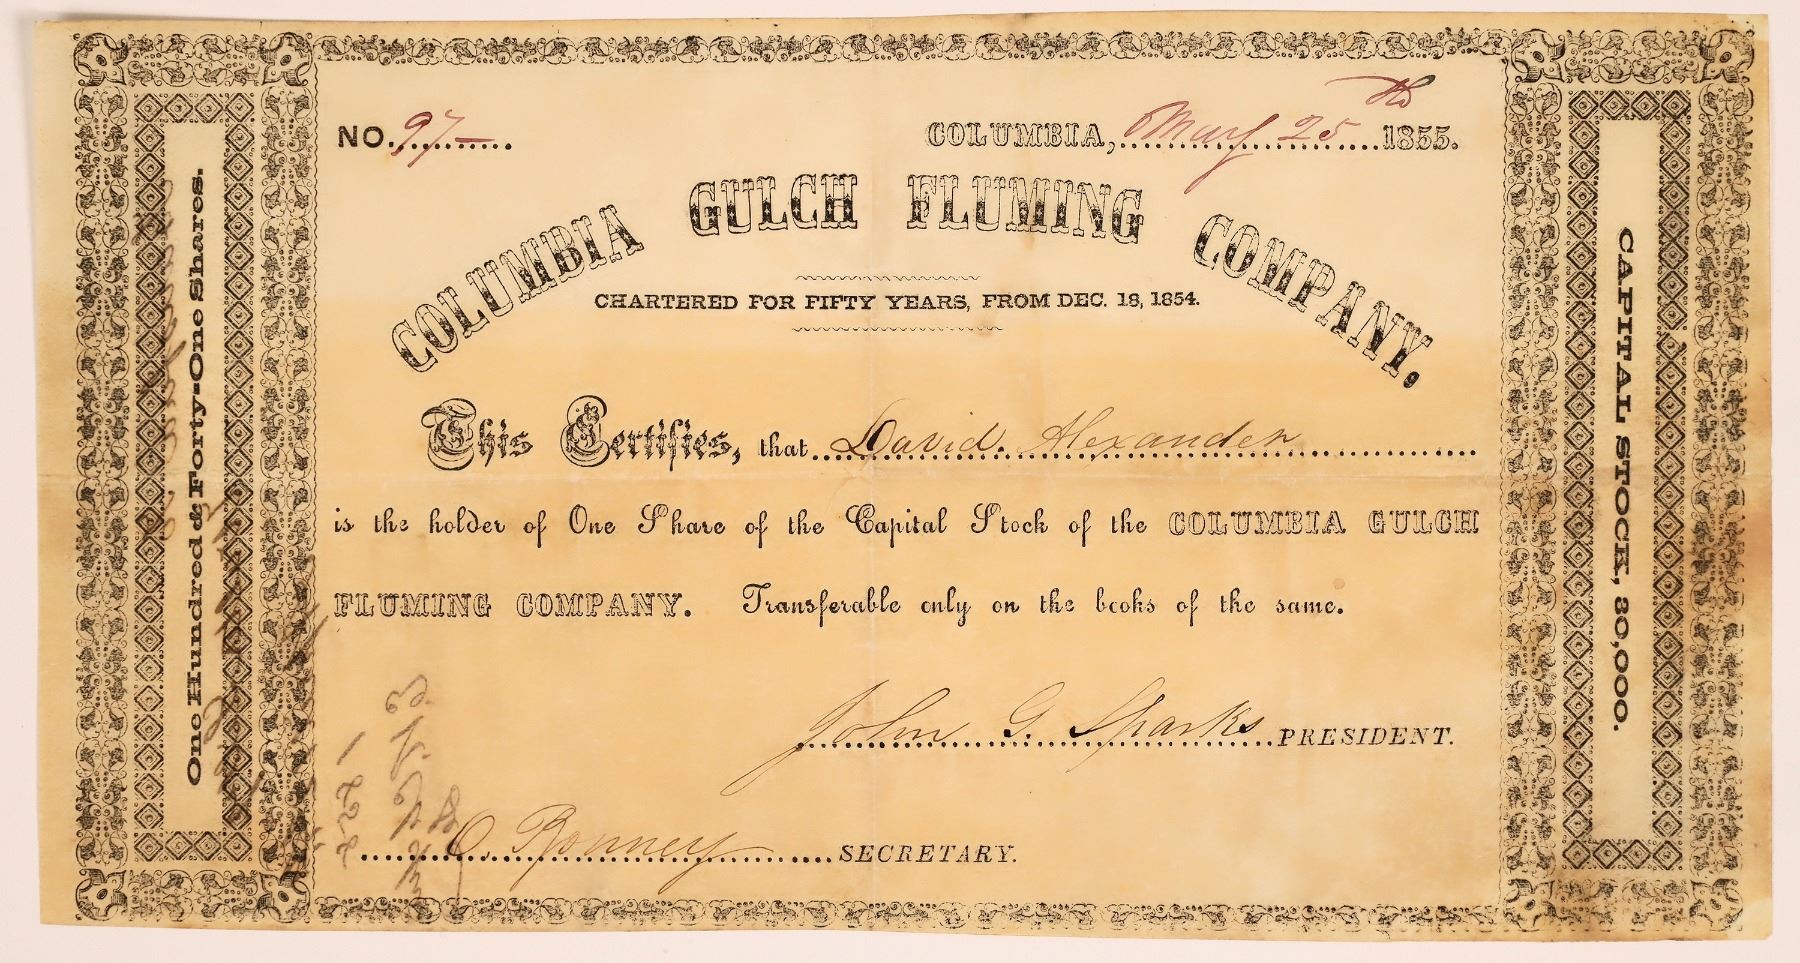 NO. 97
COLUMBIA, May 25th 1855.
COLUMBIA GULCH FLUMING COMPANY.
CHARTERED FOR FIFTY YEARS, FROM DEC. 18, 1854.
This Certifies, that David Alexander
is the holder of One Share of the Capital Stock of the COLUMBIA GULCH
FLUMING COMPANY. Transferable only on the books of the same.
John G. Sparks PRESIDENT.
O. Ronney SECRETARY.
One Hundred & Forty-One Shares.
CAPITAL STOCK, 80,000.